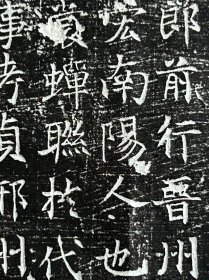 郎前行晋州
宏南陽人也
裳蟬聯於代
事考貞邢州